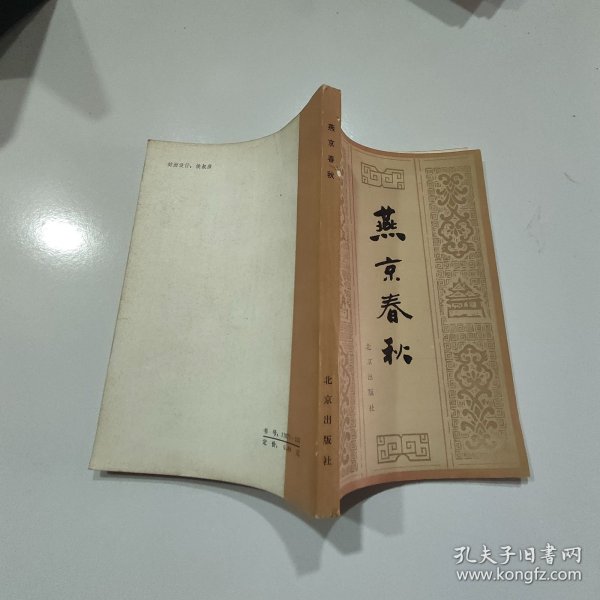 燕京春秋
北京出版社
燕京春秋
北京出版社
封面设计：
书号：
定价：
孔夫子旧书网
www.kongfz.com